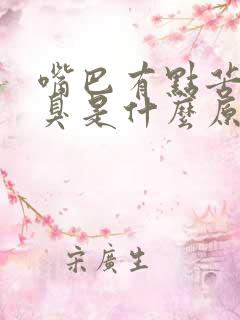 嘴巴有點苦
臭是什麼原
宋廣生